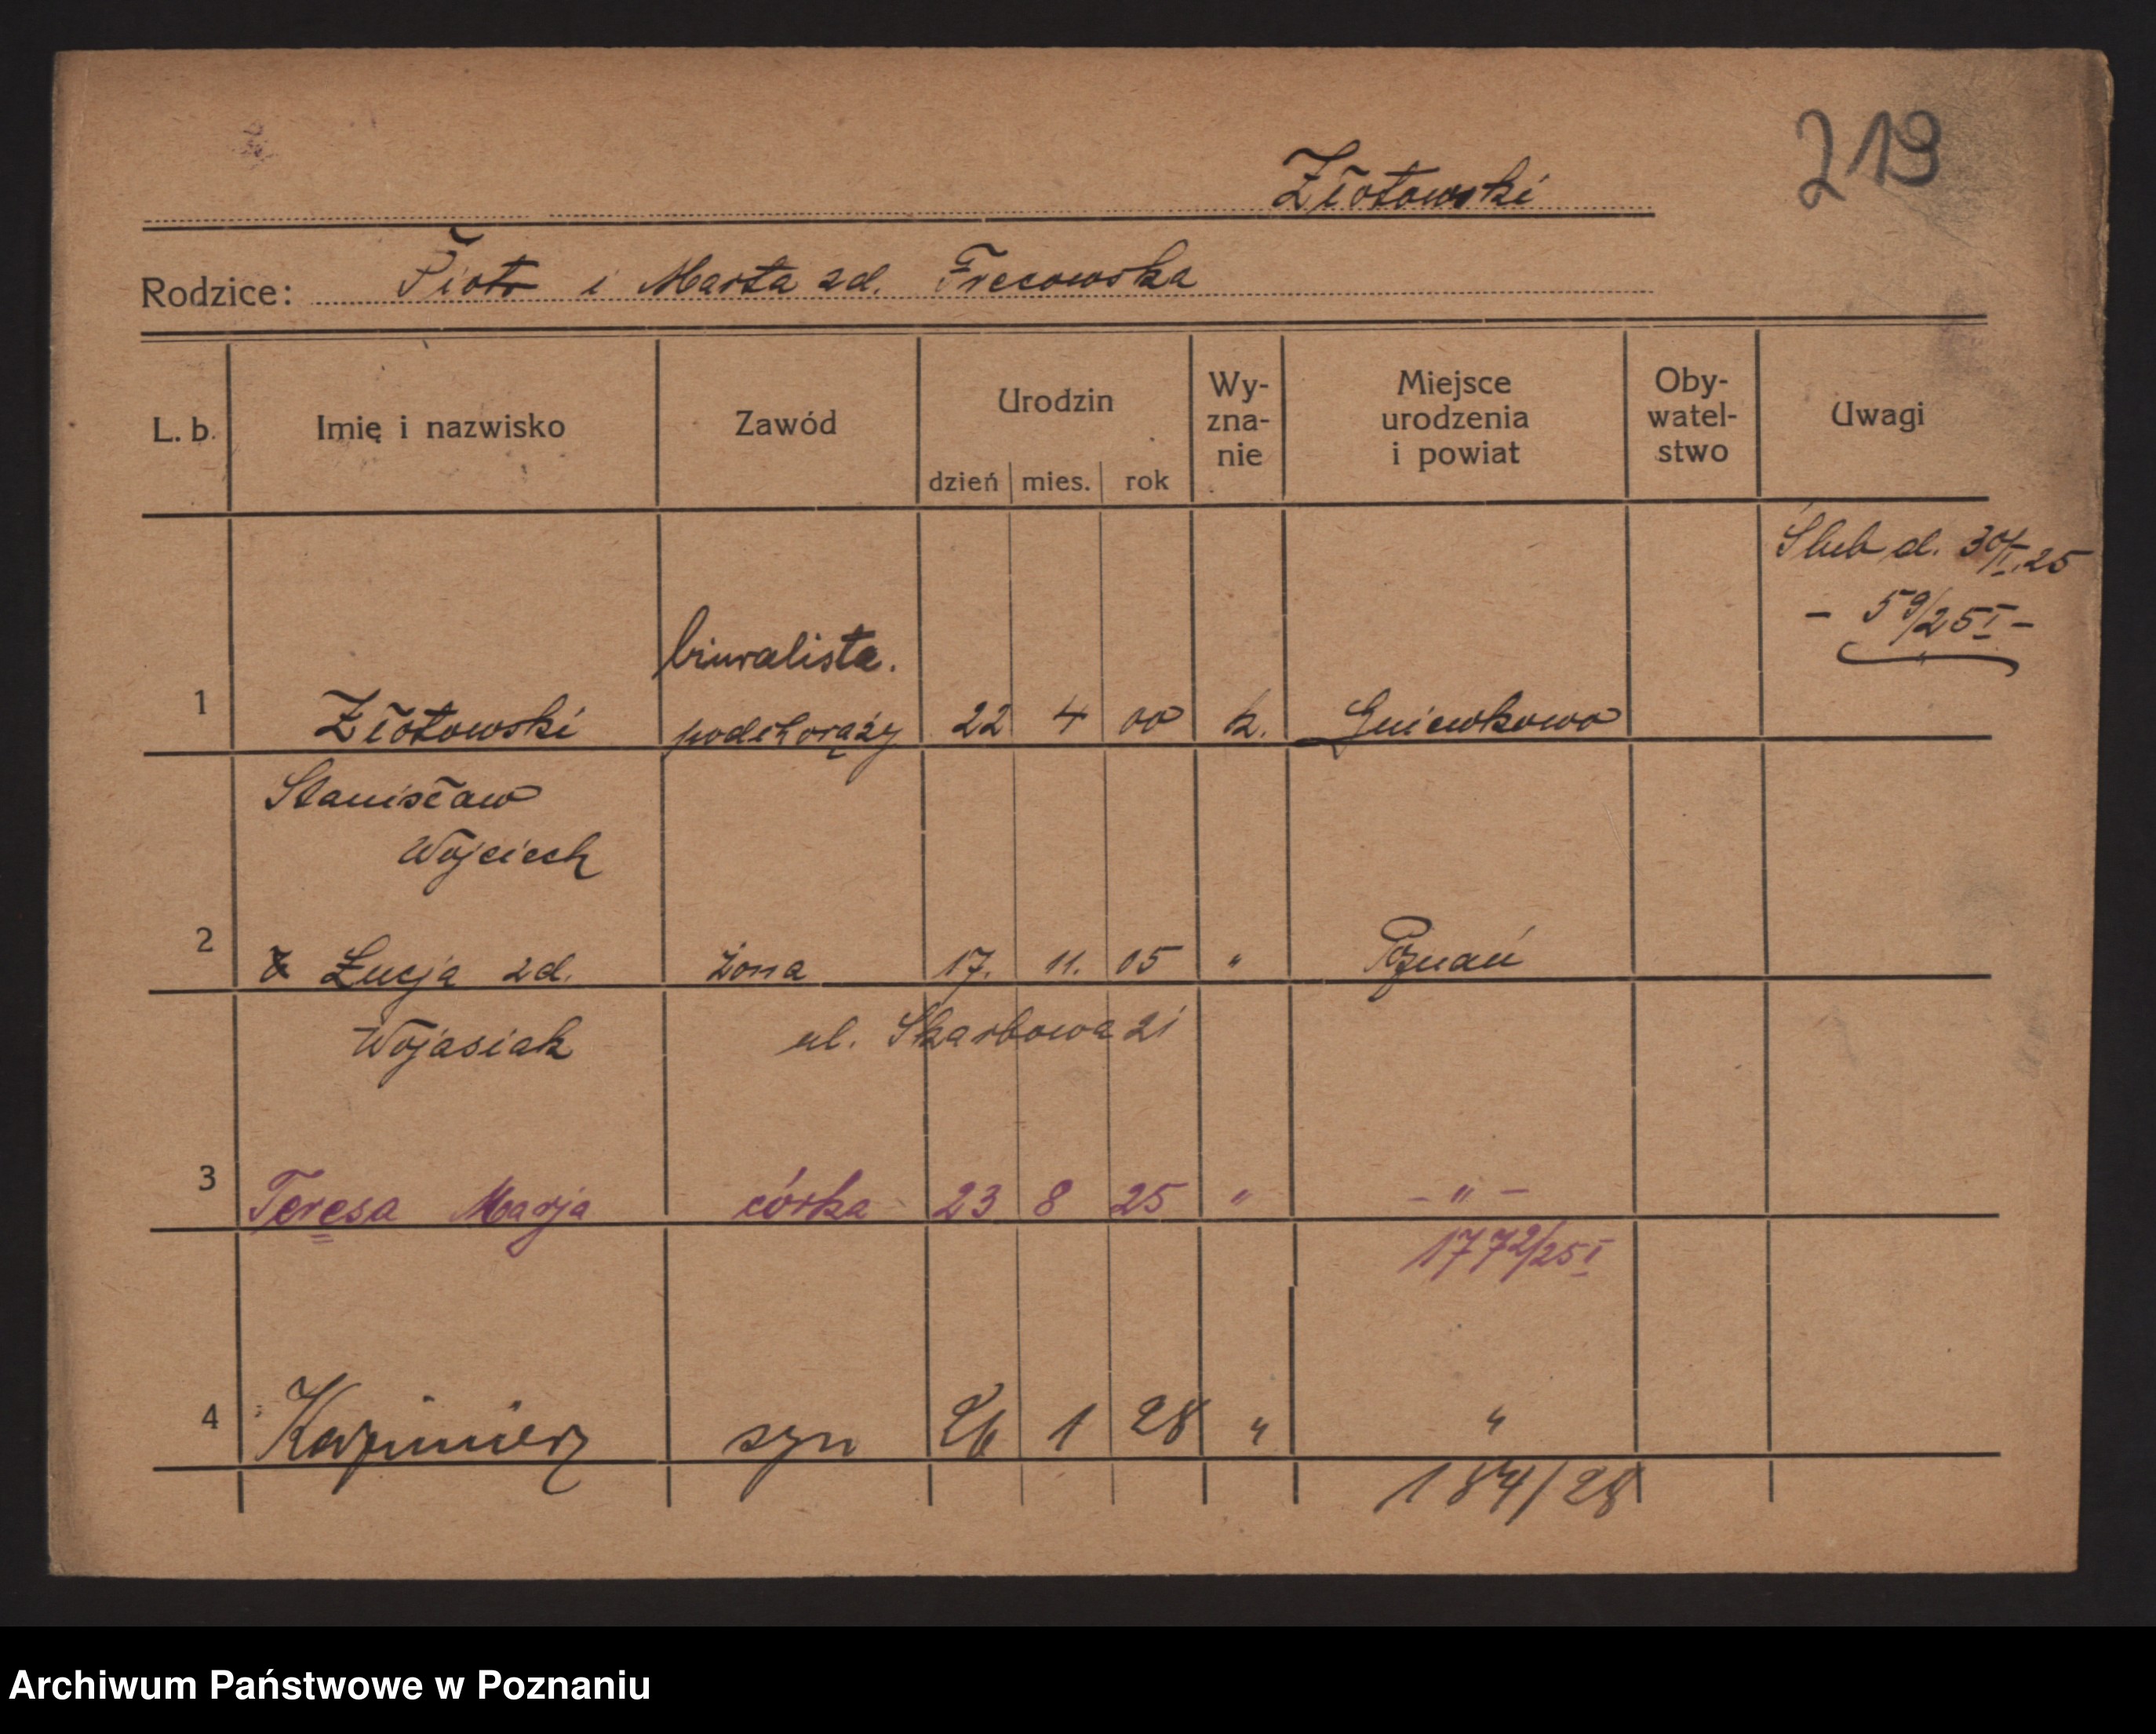 219
Złotowski
Rodzice: Piotr i Marta zd. Frecowska
L. b. Imię i nazwisko Zawód Urodzin dzień mies. rok Wy-zna-nie Miejsce urodzenia i powiat Oby-watel-stwo Uwagi
Ślub d. 30/I.25
- 59/25 I -
biuralista.
1 Złotowski podchorąży 22 4 00 k. Gniewkowo
Stanisław
Wojciech
2 Łucja zd. żona 17. 11. 05 " Poznań
Wojasiak ul. Skarbowa 21
3 Teresa Marja córka 23 8 25 " - " -
1772/25 I
4 Kazimierz syn 26 1 28 " "
184/28
Archiwum Państwowe w Poznaniu